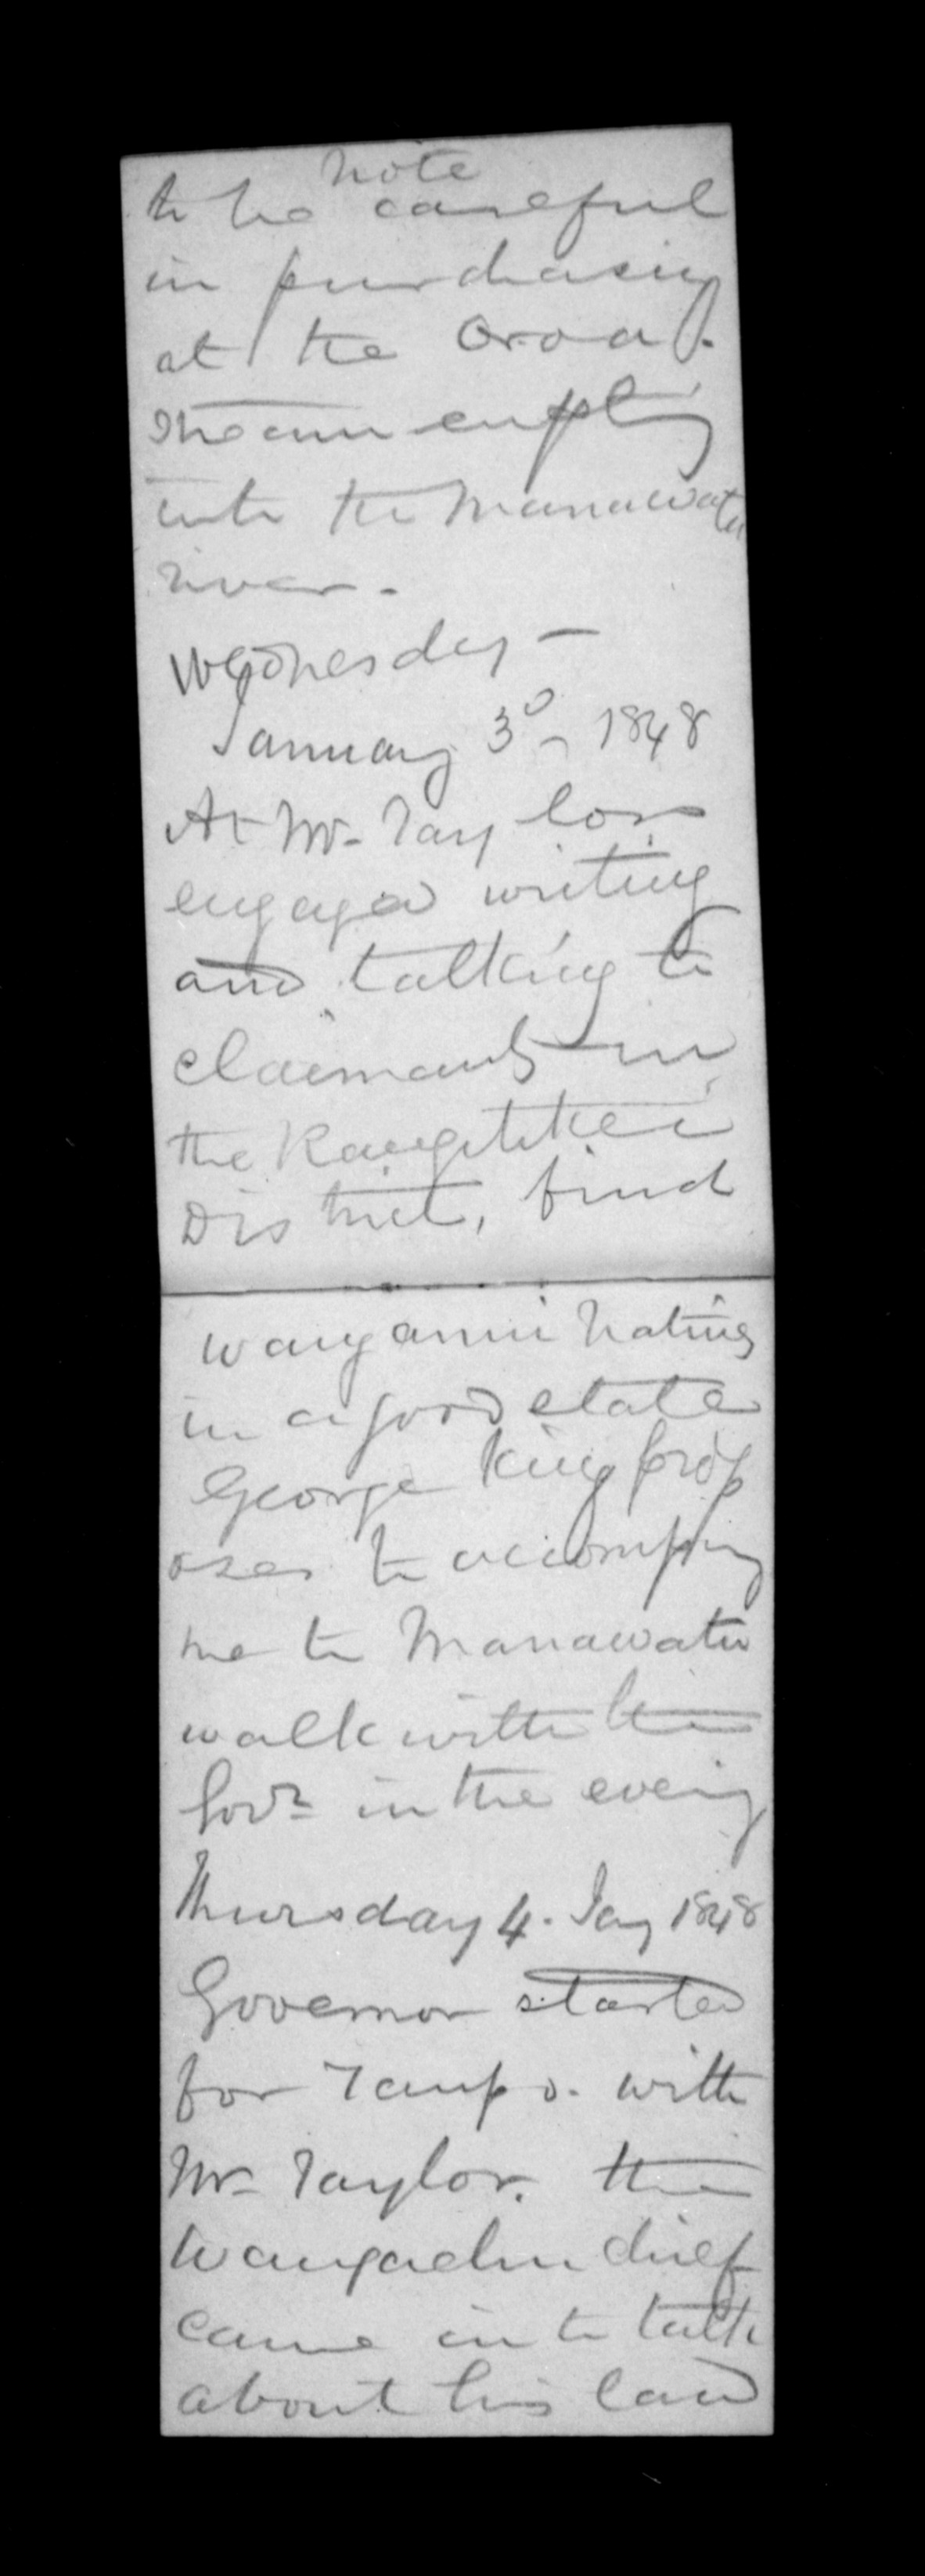 note
to be careful
in purchasing
at the Oroua.
Stream empting
into the Manawatu
river -
Wednesday -
January 3d 1848
At Mr. Taylors
engaged writing
and talking to
claimants in
the Rangitikei
District, find
Wanganui natives
in a good state
George King prop
oses to accompany
me to Manawatu
walk with the
Govr in the evenig
Thursday 4. Jany 1848
Governor started
for Taupo. with
Mr Taylor. the
chief
came in to talk
about his land